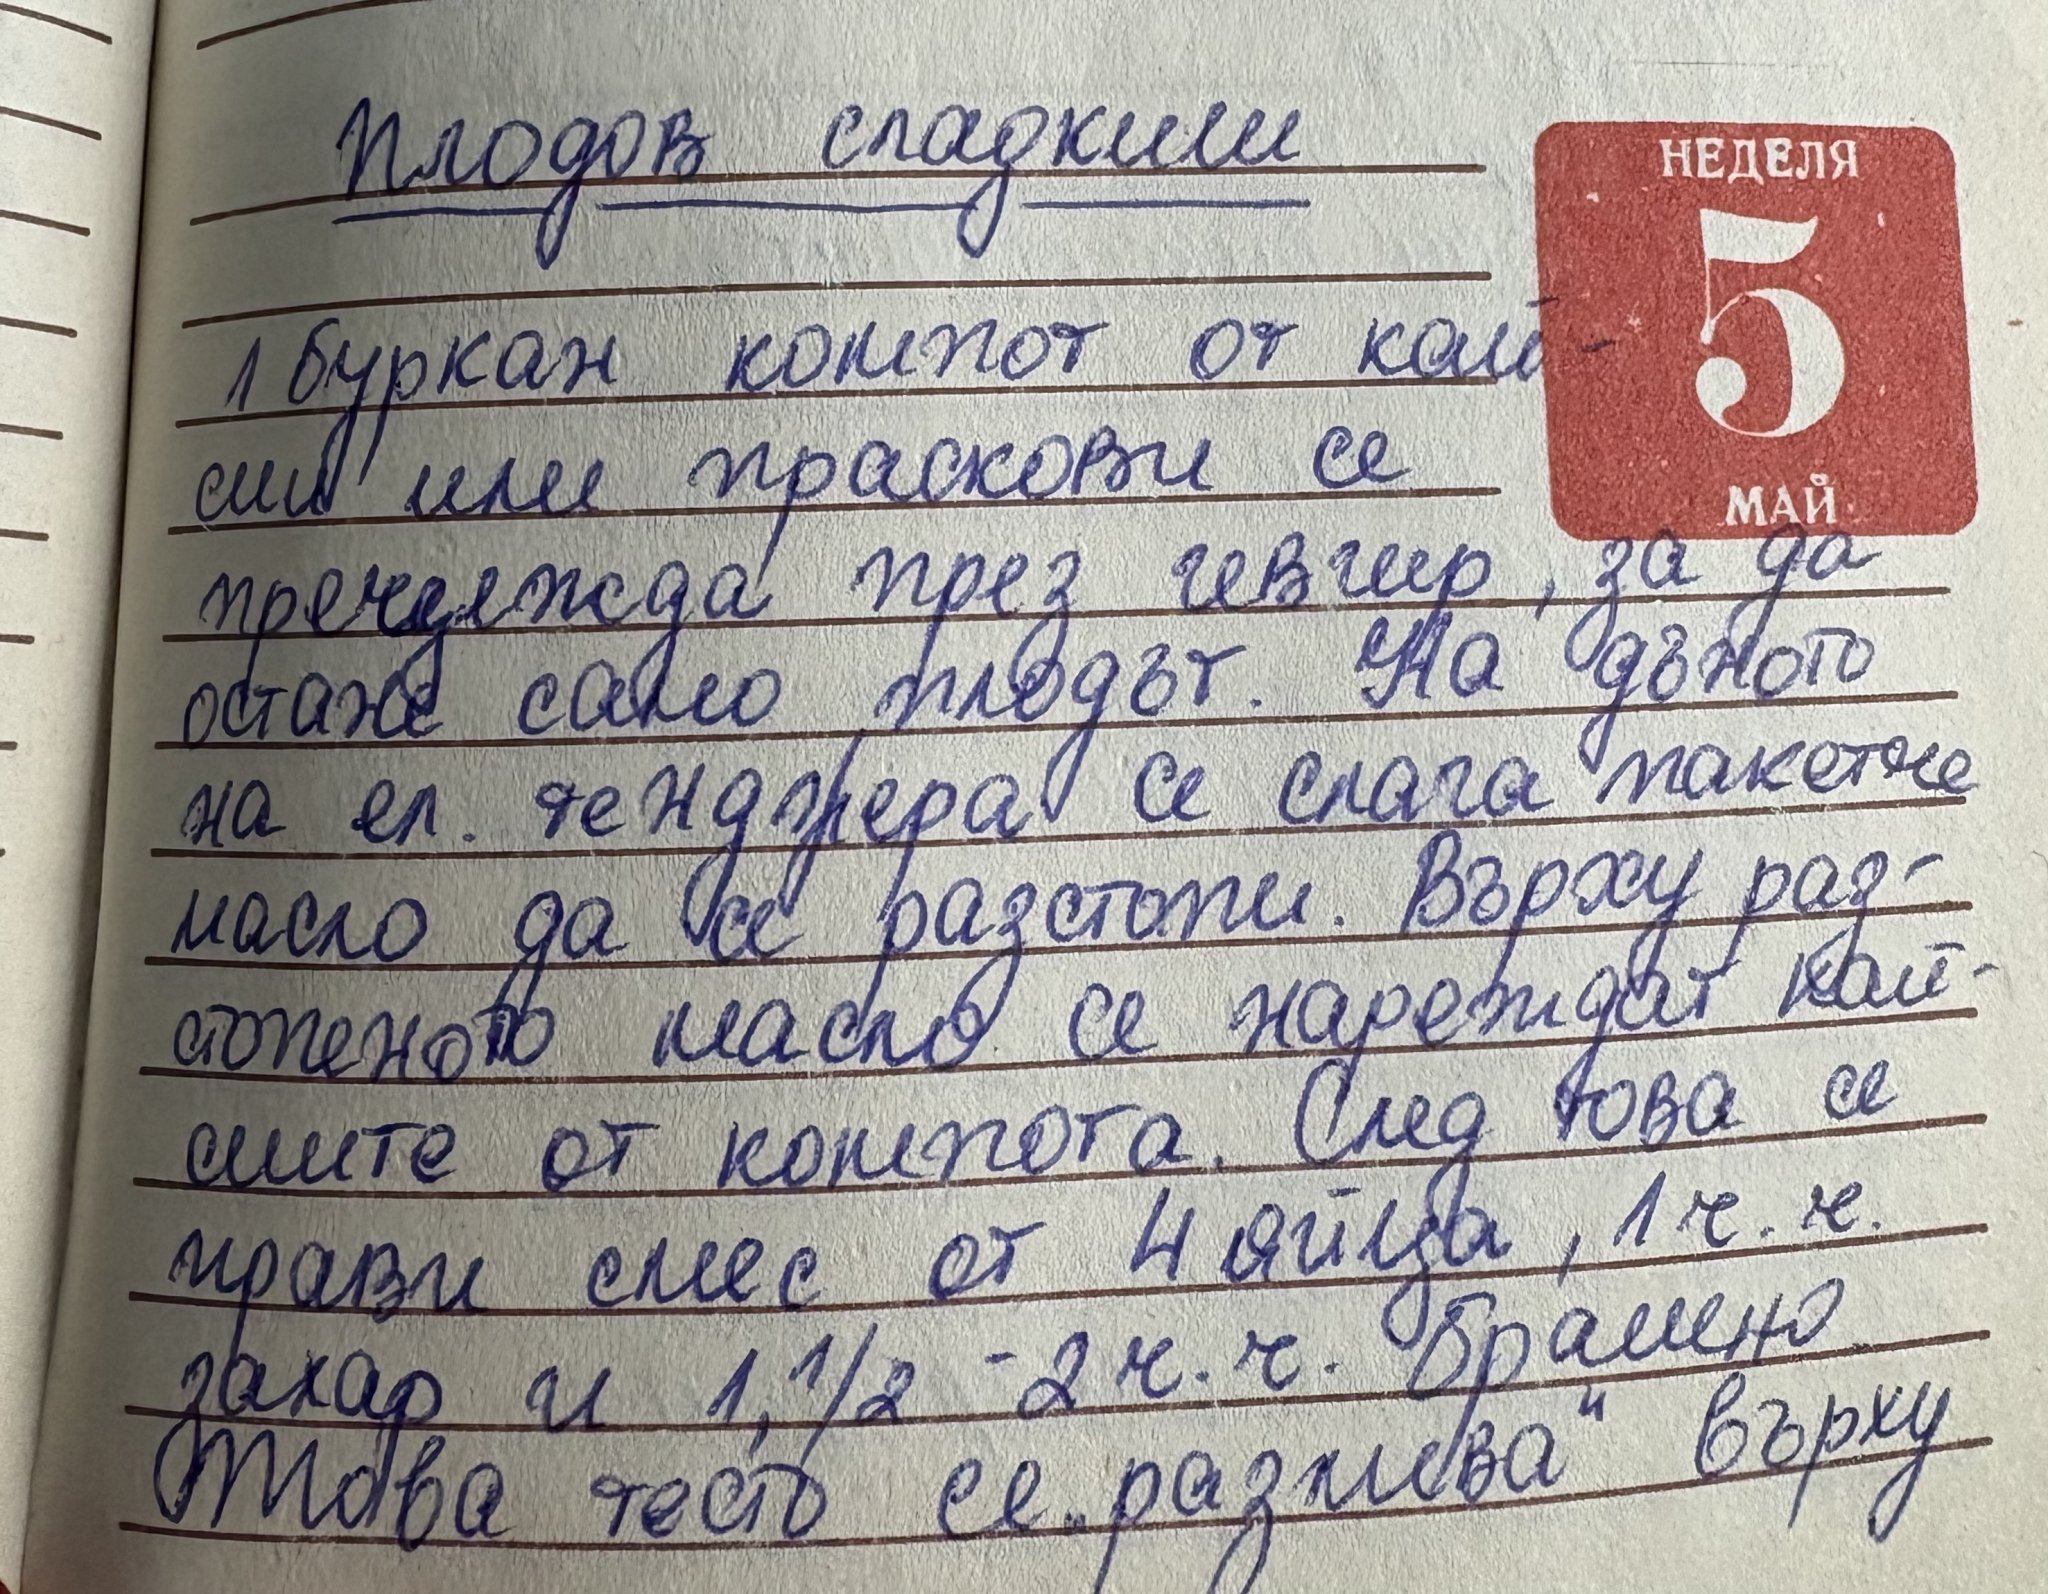 Плодов сладкиш
НЕДЕЛЯ
5
МАЙ
1 буркан компот от кай-
сии или праскови се
прецежда през гевгир, за да
остане само плодът. На дъното
на ел. тенджера се слага пакетче
масло да се разстопи. Върху раз-
стопеното масло се нареждат кай-
сиите от компота. След това се
прави смес от 4 яйца, 1 ч. ч.
захар и 1, 1/2 - 2 ч. ч. брашно
Това тесто се „разлива" върху